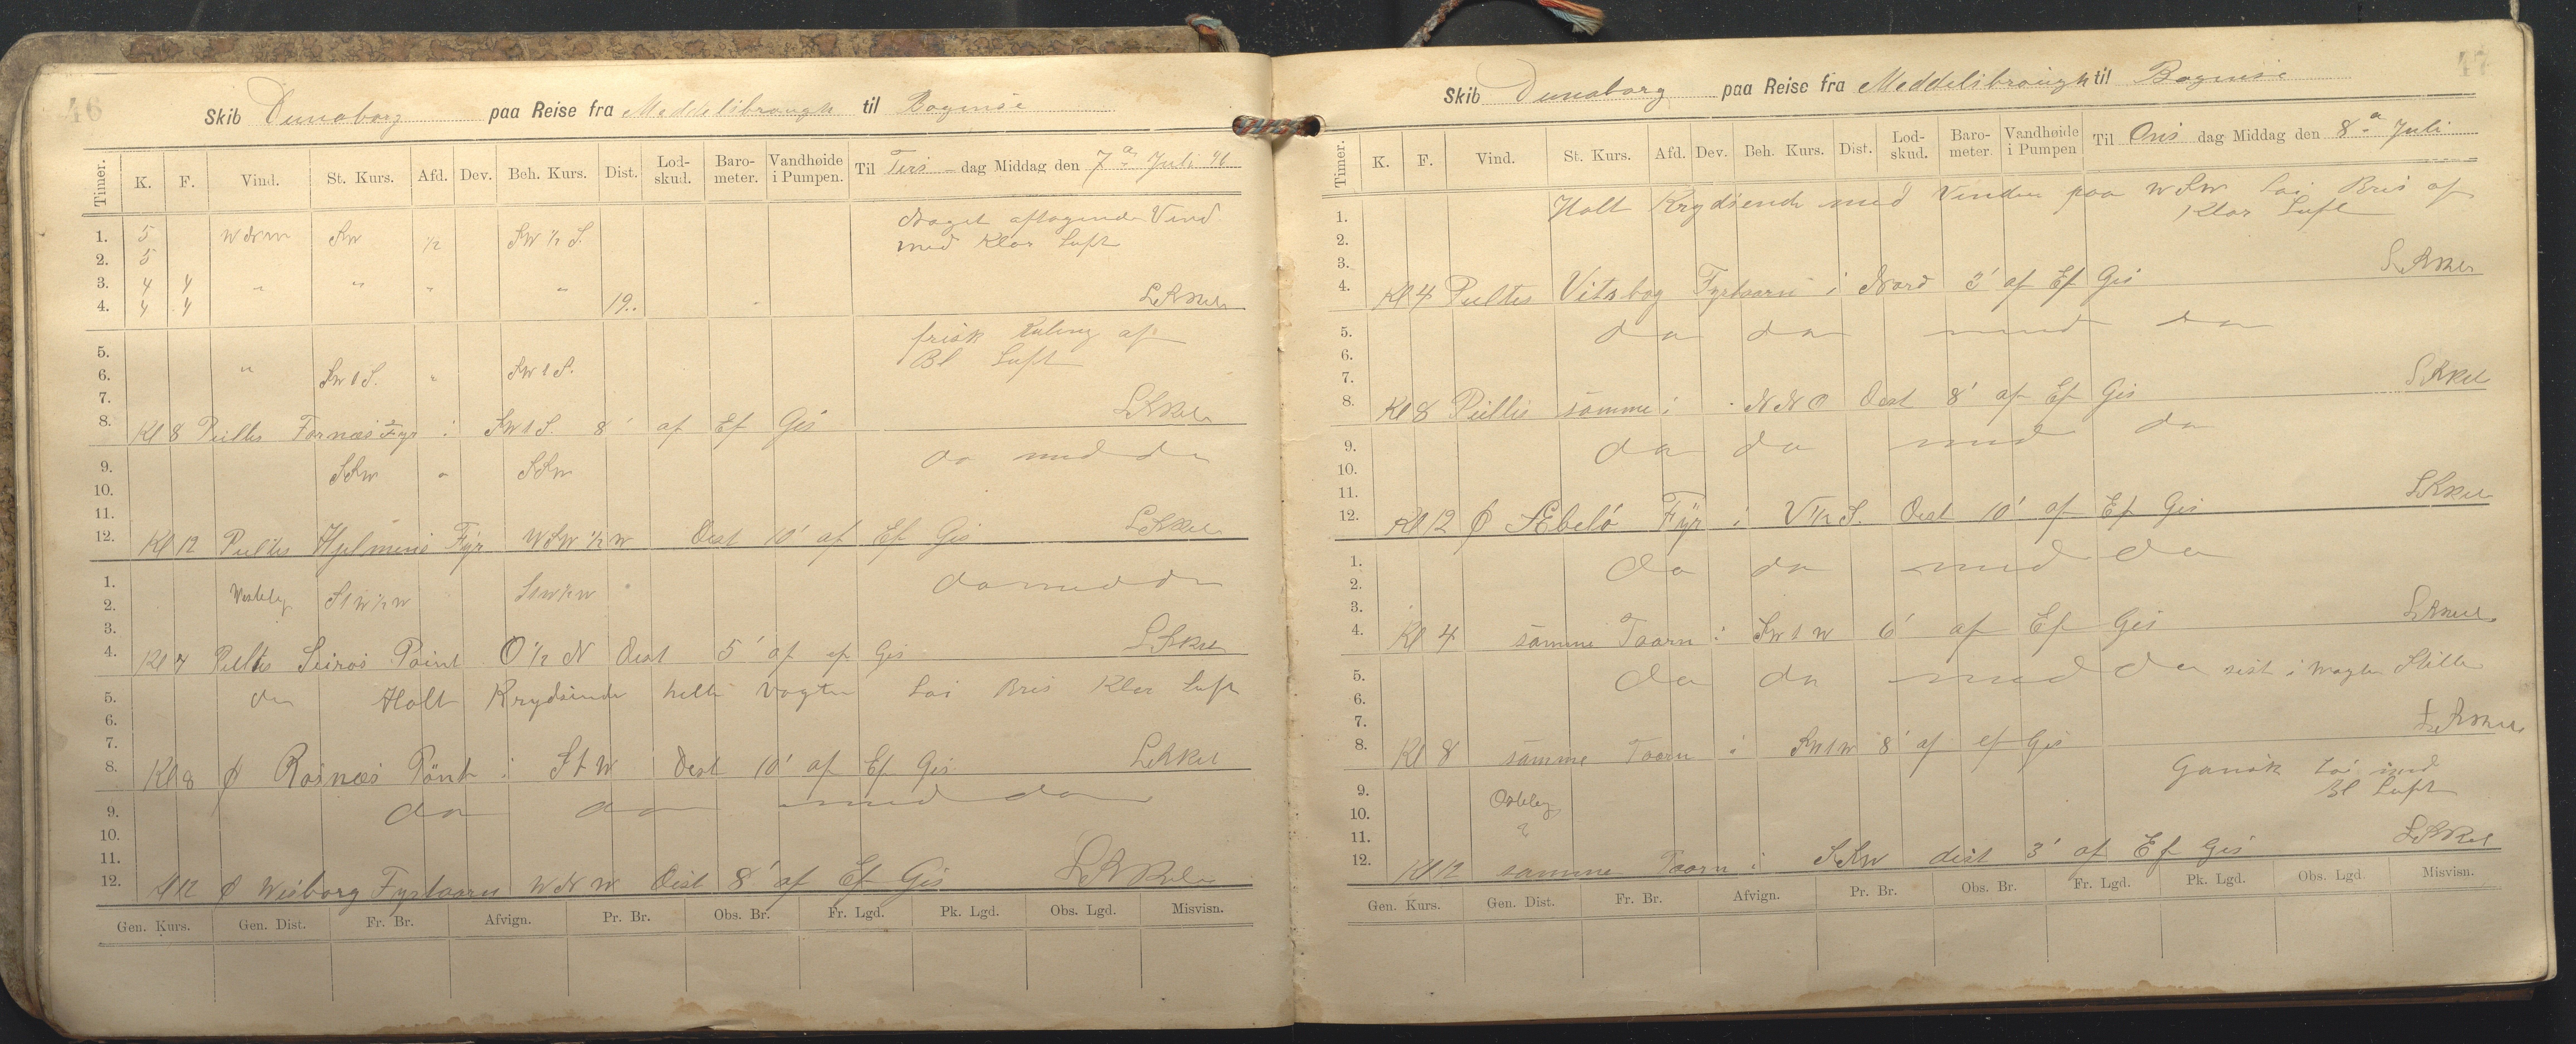 46
Skib Dunaborg paa Reise fra Meddelsbraugh til Bogense
Timer. K. F. Vind. St. Kurs. Afd. Dev. Beh. Kurs. Dist. Lod-skud. Baro-meter. Vandhøide i Pumpen. Til Tirs-dag Middag den 7de Juli
Noget aftagende Vind
1. 5 WNW SW 1/2 SW 1/2 S.
med Klar Luft
2. 5
3. 4 4 " " " "
4. 4 4 19..
5. frisk Kuling af
Bl Luft
6. " SW t S. " SW t S.
7.
8. Kl 8 Peiltes Fornæs Fyr i SW t S. 8' af Ef Gis
9. SSW " SSW do med do
10.
11.
12. Kl 12 Peiltes Hjelmens Fyr WSW 1/2 W Dist 10' af Ef Gis
1. do med do
2. Vestelig S t W 1/2 W S t W 1/2 W
3.
4. Kl 4 Peiltes Seirøs Point O 1/2 N Dist 5' af ef Gis
5. do Holt Krydsende hele Vagten Løi Bris Klar Luft
6.
7.
8. Kl 8 P Rosnæs Pönt i S t W Dist 10' af Ef Gis
9. do do med do
10.
11.
12. Kl 12 P Wisborg Fyrtaarn WNW Dist 8' af Ef Gis
Gen. Kurs. Gen. Dist. Fr. Br. Afvign. Pr. Br. Obs. Br. Fr. Lgd. Pk. Lgd. Obs. Lgd. Misvisn.
47
Skib Dunaborg paa Reise fra Meddelsbraugh til Bogense
Timer. K. F. Vind. St. Kurs. Afd. Dev. Beh. Kurs. Dist. Lod-skud. Baro-meter. Vandhøide i Pumpen Til Ons dag Middag den 8de Juli
1. Holt Krydsende med Vinden paa WSW Löi Bris af
Klar Luft
2.
3.
4. Kl 4 Peiltes Vitsbog Fyrtaarn i Nord 3' af Ef Gis
5. do do med do
6.
7.
8. Kl 8 Peiltes samme i NNO Dist 8' af Ef Gis
9. do do med do
10.
11.
12. Kl 12 P Æbelö Fÿr i V 1/2 S. Dist 10' af Ef Gis
1. do do med do
2.
3.
4. Kl 4 samme Taarn i SW t W 6' af Ef Gis
5. do do med do sist i Wagten Stille
6.
7.
8. Kl 8 samme Taarn i SW t W 8' af ef Gis
Gansk Löi med
9. Ostelig Bl Luft
10.
11.
12. Kl 12 samme Taarn i SSW dist 3' af Ef Gis
Gen. Kurs. Gen. Dist. Fr. Br. Afvign. Pr. Br. Obs. Br. Fr. Lgd. Pk. Lgd. Obs. Lgd. Misvisn.